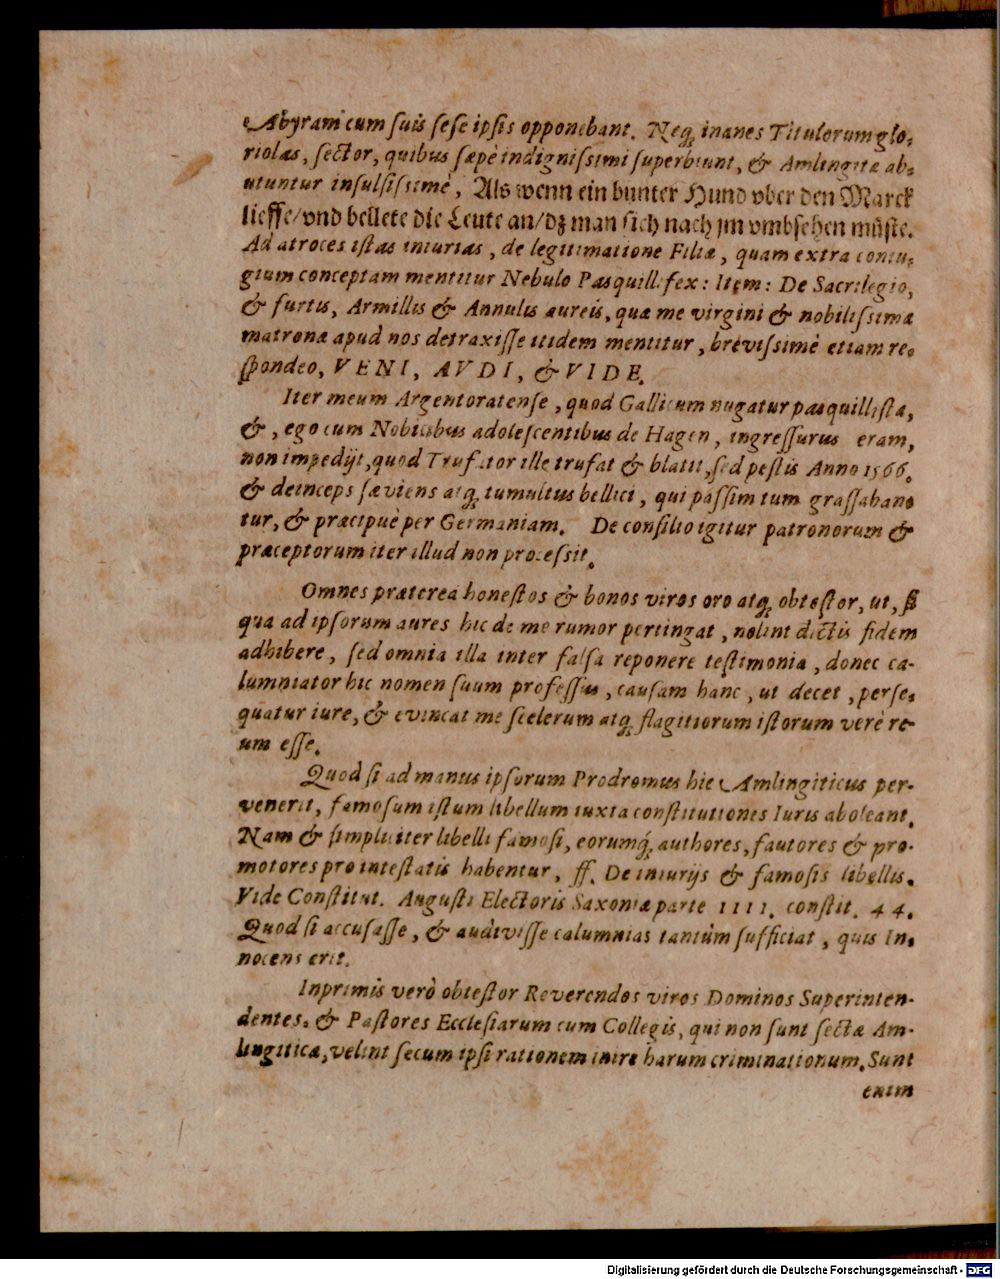 Abyram cum suis sese ipsis opponebant. Neq́; inanes Titulorum glo-
riolas, sector, quibus sæpè indignissimi superbiunt, & Amlingitæ ab-
utuntur insulsissimè, Als wenn ein bunter Hund vber den Marck
lieffe/vnd bellete die Leute an/dz man sich nach jm vmbsehen müste.
Ad atroces istas iniurias, de legitimatione Filiæ, quam extra coniu-
gium conceptam mentitur Nebulo Pasquillifex: Item: De Sacrilegio,
& furtis, Armillis & Annulis aureis, quæ me virgini & nobilissimæ
matronæ apud nos detraxisse itidem mentitur, brevissimè etiam re-
spondeo, VENI, AVDI, & VIDE.
Iter meum Argentoratense, quod Gallicum nugatur pasquillista,
&, ego cum Nobilibus adolescentibus de Hagen, ingressurus eram,
non impedijt, quod Trufator ille trufat & blatit, sed pestis Anno 1566.
& deinceps sæviens atq́; tumultus bellici, qui passim tum grassaban-
tur, & præcipuè per Germaniam. De consilio igitur patronorum &
præceptorum iter illud non processit.
Omnes præterea honestos & bonos viros oro atq́; obtestor, ut, si
qua ad ipsorum aures hic de me rumor pertingat, nolint dictis fidem
adhibere, sed omnia illa inter falsa reponere testimonia, donec ca-
lumniator hic nomen suum professus, causam hanc, ut decet, perse-
quatur iure, & evincat me scelerum atq́; flagitiorum istorum verè re-
um esse.
Quod si ad manus ipsorum Prodromus hic Amlingiticus per-
venerit, famosum istum libellum iuxta constitutiones Iuris aboleant.
Nam & simpliciter libelli famosi, eorumq́; authores, fautores & pro-
motores pro intestatis habentur, ff. De iniurijs & famosis libellis.
Vide Constitut. Augusti Electoris Saxoniæ parte IIII. constit. 44.
Quod si accusasse, & audivisse calumnias tantùm sufficiat, quis In-
nocens erit.
Inprimis verò obtestor Reverendos viros Dominos Superinten-
dentes, & Pastores Ecclesiarum cum Collegis, qui non sunt sectæ Am-
lingiticæ, velint secum ipsi rationem inire harum criminationum. Sunt
enim
Digitalisierung gefördert durch die Deutsche Forschungsgemeinschaft - DFG